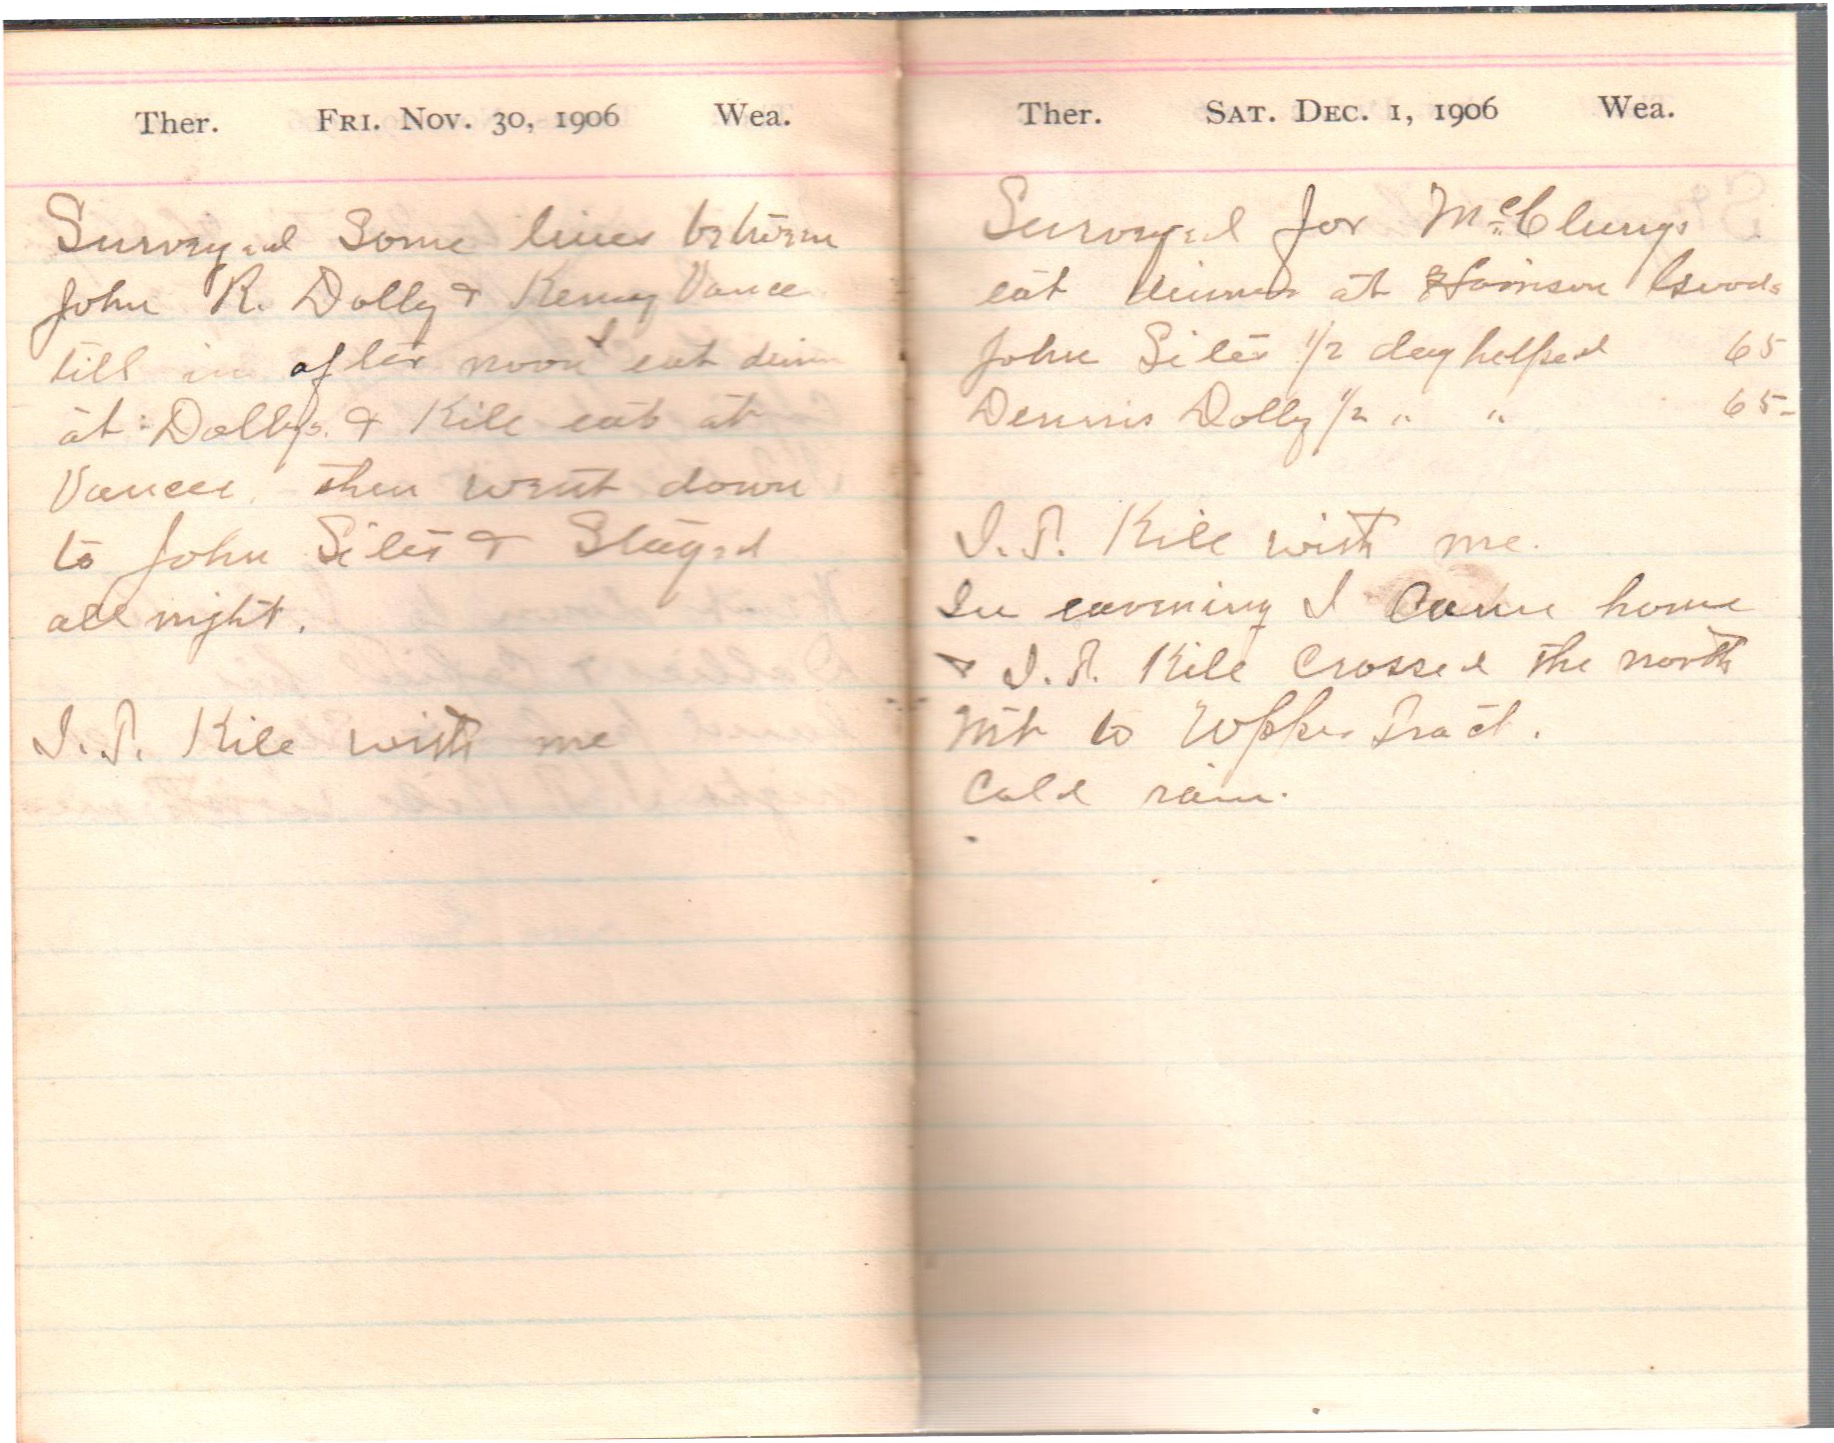 Ther. Fri. Nov. 30, 1906 Wea.
Surveyed Some lines between
John R. Dolly & Kenny Vance
till in after noon & eat dinn
at Dollys. & Kile eat at
Vances. then went down
to John Sites & Stayed
all night.
I. S. Kile with me
Ther. Sat. Dec. 1, 1906 Wea.
Surveyed for McClungs
eat dinner at Harrison
John Sites 1/2 day helped 65
Dennis Dolly 1/2 " " 65-
I. S. Kile with me.
In eavening I Came home
& I. S. Kile Crossed the north
Mt to Upper Tract.
Cold rain.